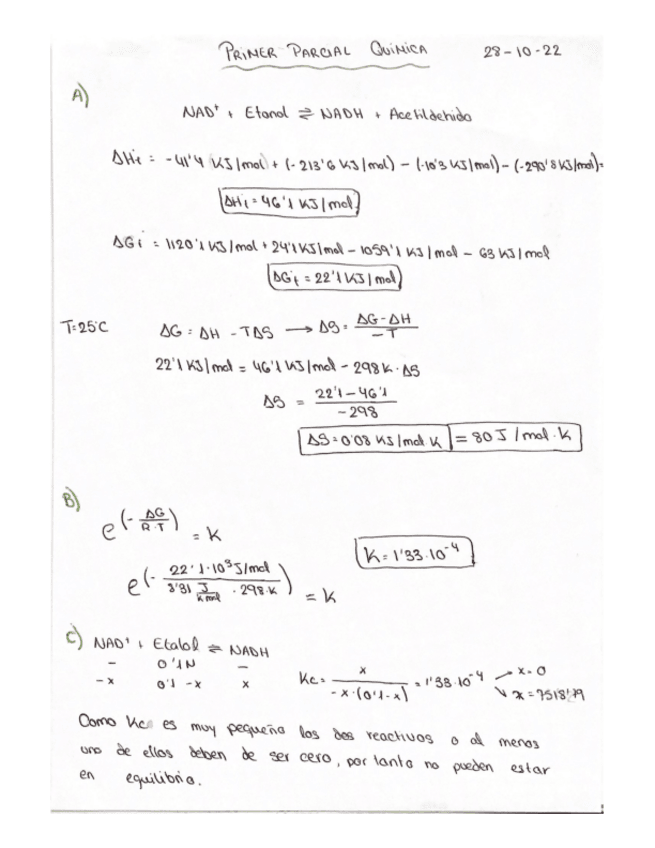 PRIMER PARCIAL QUÍMICA 28-10-22
A)
NAD⁺ + Etanol ⇌ NADH + Acetildehido
ΔHi = -41'4 KJ/mol + (-213'6 KJ/mol) - (-10'3 KJ/mol) - (-290'8 KJ/mol) =
ΔHi = 46'1 KJ/mol
ΔGi = 1120'1 KJ/mol + 24'1 KJ/mol - 1059'1 KJ/mol - 63 KJ/mol
ΔGi = 22'1 KJ/mol
T=25°C ΔG = ΔH - TΔS → ΔS = (ΔG-ΔH)/(-T)
22'1 KJ/mol = 46'1 KJ/mol - 298K · ΔS
ΔS = (22'1-46'1)/(-298)
ΔS = 0'08 KJ/mol·K = 80 J/mol·K
B)
e^(-ΔG/(R·T)) = K
K = 1'33·10⁻⁴
e^(-(22'1·10³ J/mol)/(8'31 J/(K mol) · 298·K)) = K
C) NAD⁺ + Etalol ⇌ NADH
- 0'1N -
-x 0'1-x x
Kc = x/(-x·(0'1-x)) = 1'33·10⁻⁴ → x=0
↘ x=7518'79
Como Kc es muy pequeño los dos reactivos o al menos
uno de ellos deben de ser cero, por tanto no pueden estar
en equilibrio.